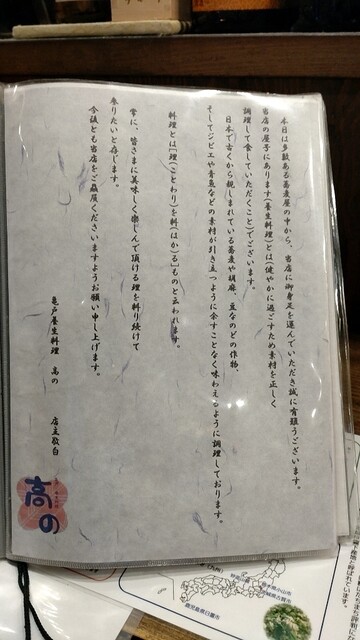 本日は多数ある蕎麦屋の中から、当店に御身足を運んでいただき誠に有難うございます。
当店の屋子にあります(養生料理)とは(健やかに過ごすため素材を正しく
調理して食していただくこと)でございます。
日本で古くから親しまれている蕎麦や胡麻、豆などの作物、
そしてジビエや青魚などの素材が引き立つように余すことなく味わえるように調理しております。
料理とは[理(ことわり)を料(はか)る]ものと云われます。
常に、皆さまに美味しく楽しんで頂ける理を料り続けて
参りたいと存じます。
今後とも当店をご贔屓くださいますようお願い申し上げます。
亀戸養生料理 高の 店主敬白
高の
鹿児島県日置市